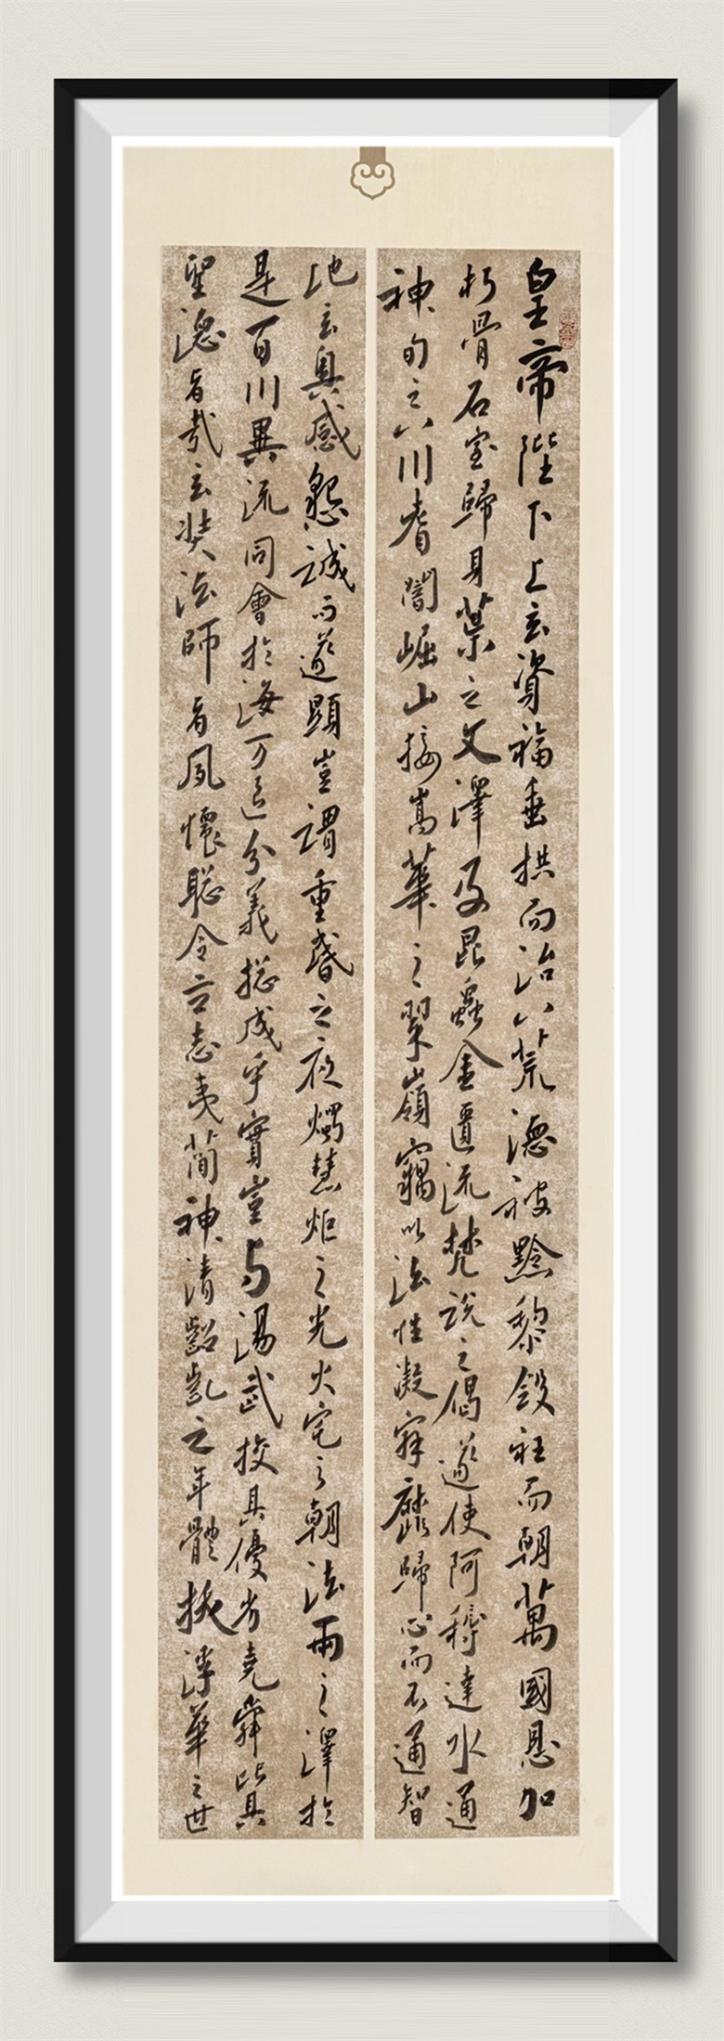 皇帝陛下上玄資福垂拱而治八荒德被黔黎斂衽而朝萬國恩加
朽骨石室歸貝葉之文澤及昆蟲金匱流梵説之偈遂使阿耨達水通
神甸之八川耆闍崛山接嵩華之翠嶺竊以法性凝寂靡歸心而不通智
地玄奧感懇誠而遂顯豈謂重昏之夜燭慧炬之光火宅之朝法雨之澤於
是百川異流同會於海万區分義揔成乎實豈与湯武挍其優劣堯舜比其
聖德者哉玄奘法師者夙懷聡令立志夷簡神清齠齔之年體拔浮華之世